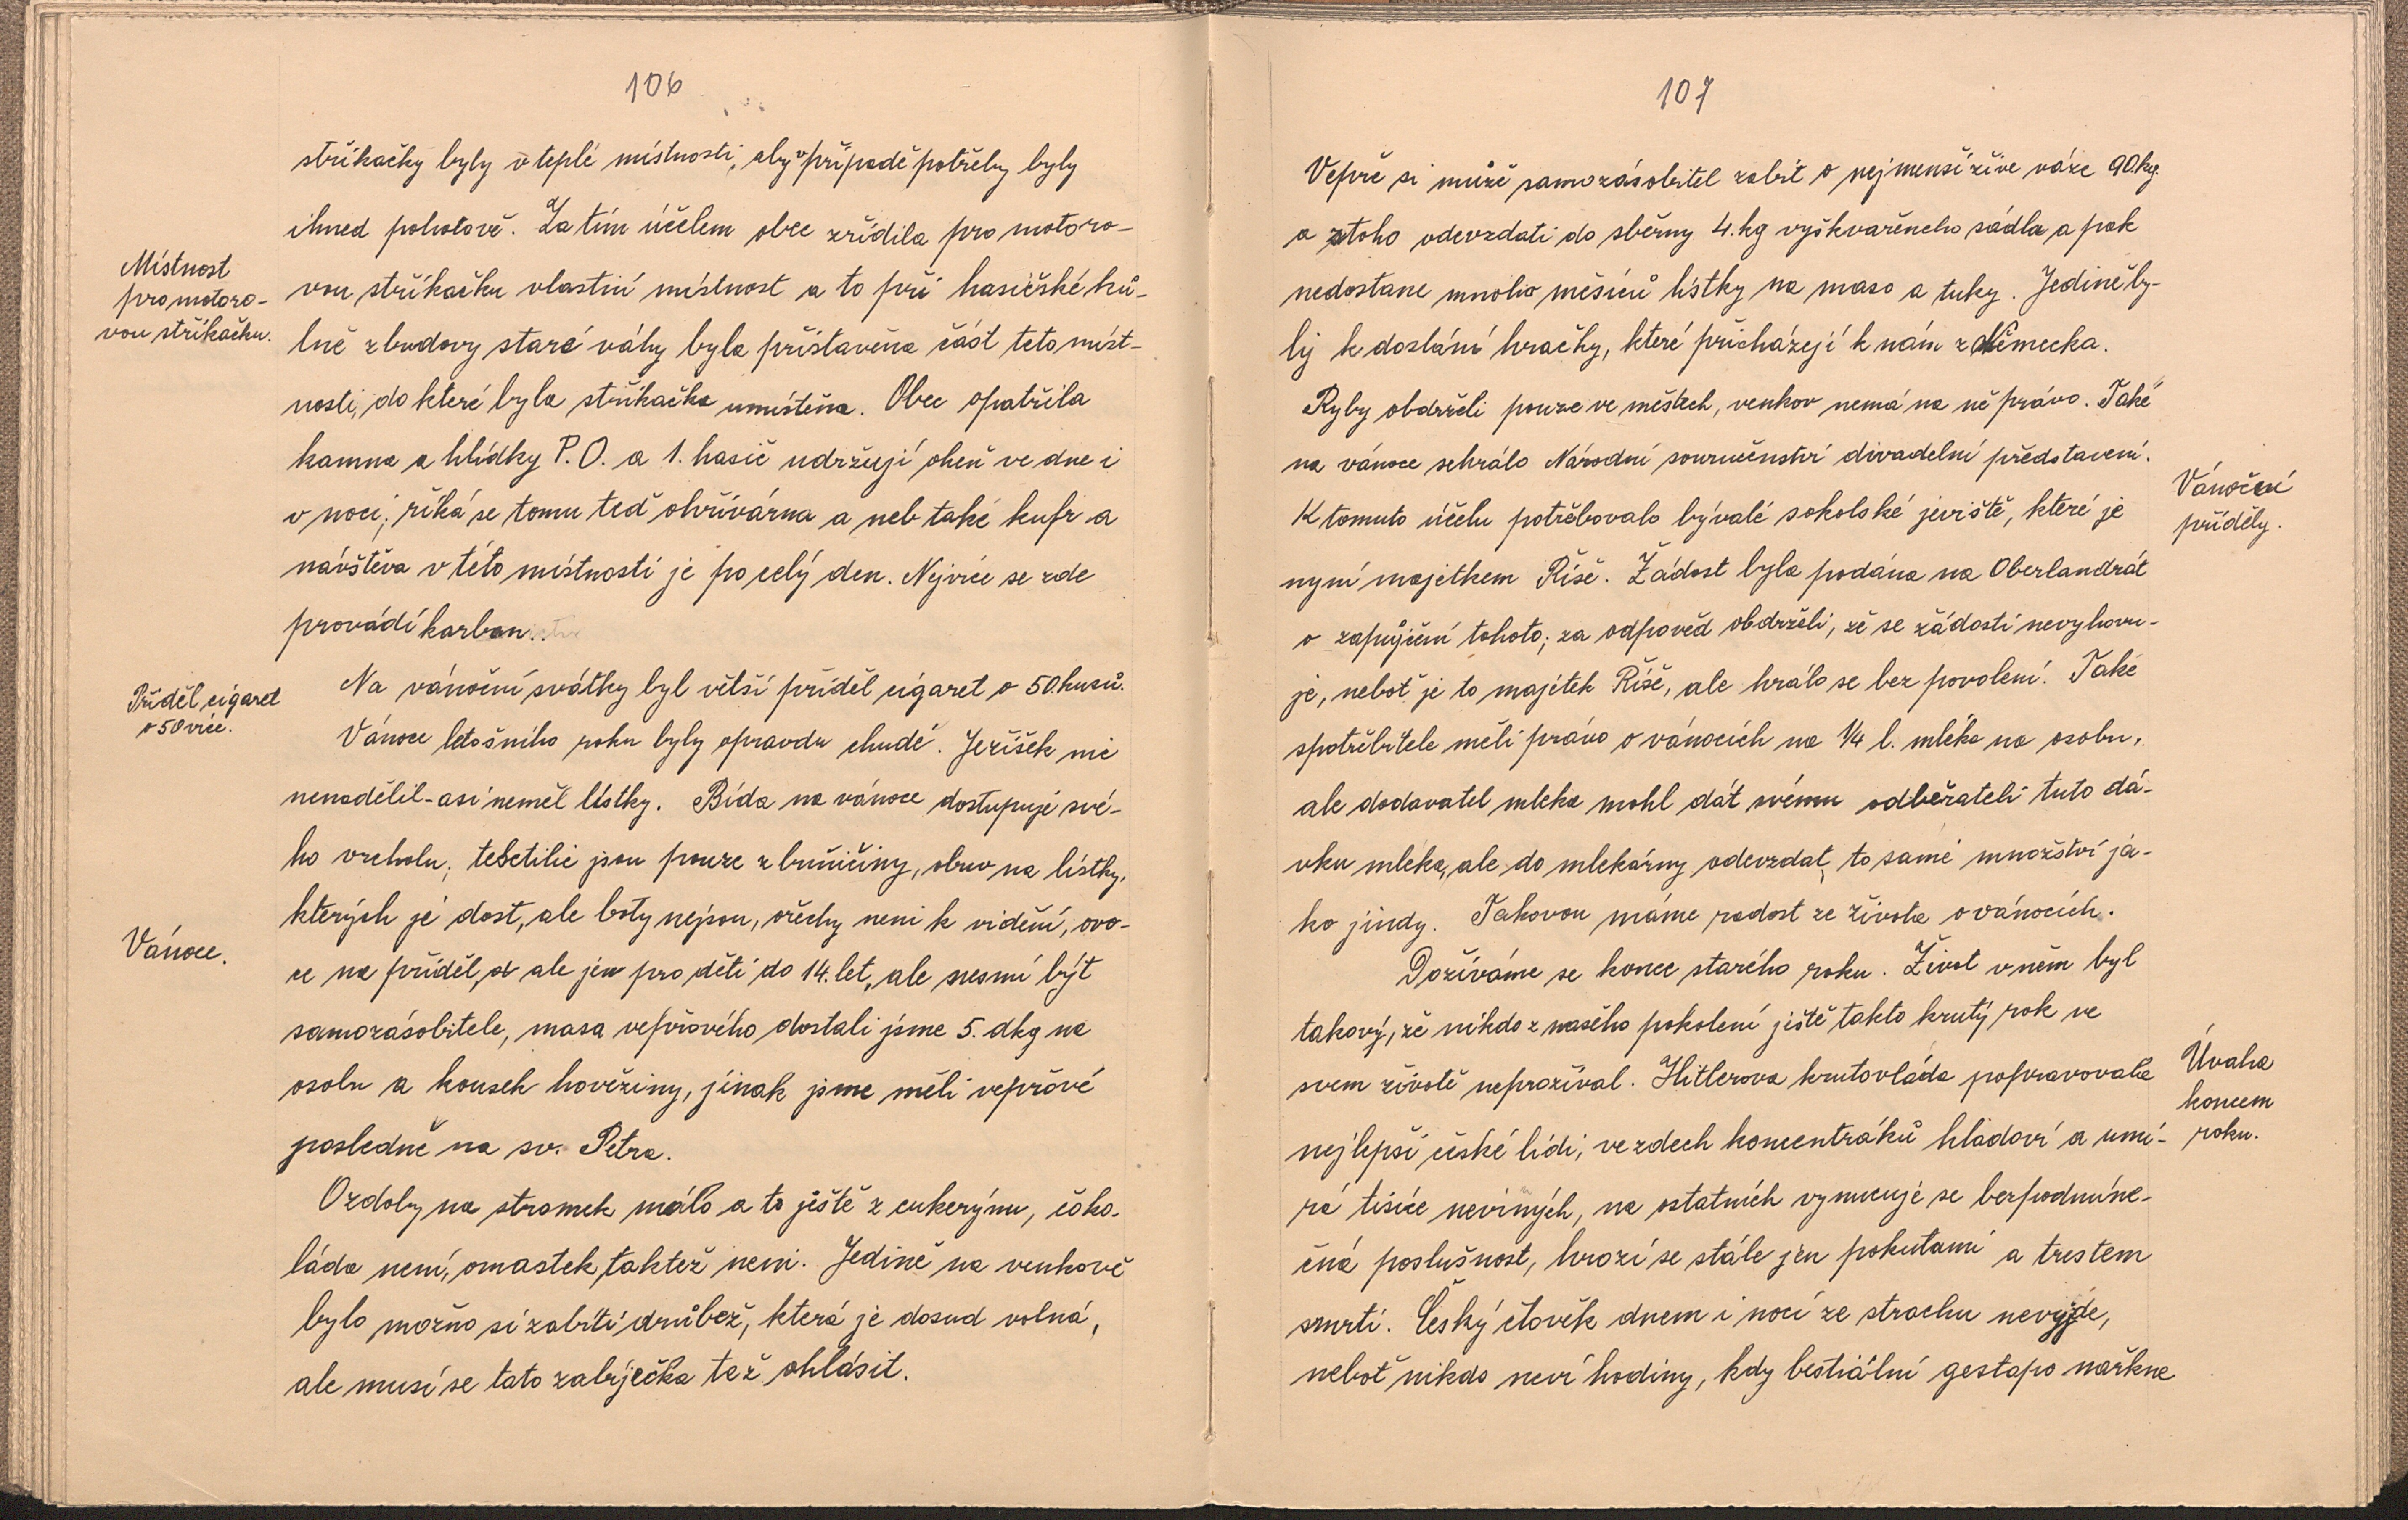 106
stříkačky byly v teplé místnosti, aby v případě potřeby byly
ihned pohotově. Za tím účelem obec zřídila pro motoro-
Místnost
pro motoro-
vou stříkačku.
vou stříkačku vlastní místnost a to při hasičské ků-
lně z budovy staré váhy byla přistavěna část této míst-
nosti, do které byla stříkačka umístěna. Obec opatřila
kamna a hlídky P.O. a 1. hasič udržují oheň ve dne i
v noci; říká se tomu teď ohřívárna a neb také kufr a
návštěva v této místnosti je po celý den. Nejvíce se zde
provádí karban..
Příděl cigaret
o 50 více.
Na vánoční svátky byl větší příděl cigaret o 50 kusů.
Vánoce letošního roku byly opravdu chudé. Ježíšek nic
nenadělil - asi neměl lístky. Bída na vánoce dostupuje své-
ho vrcholu; tektilie jsou pouze z buničiny, obuv na lístky,
kterých je dost, ale boty nejsou, ořechy není k vidění, ovo-
Vánoce.
ce na příděl, a ale jen pro děti do 14. let, ale nesmí být
samozásobitele, masa vepřového dostali jsme 5. dkg na
osobu a kousek hověziny, jinak jsme měli vepřové
posledně na sv. Petra.
Ozdoby na stromek málo a to ještě z cukerýnu, čoko-
láda není, omastek taktéž není. Jedině na venkově
bylo možno si zabíti drůbež, která je dosud volná,
ale musí se tato zabíječka též ohlásit.
107
Vepře si může samozásobitel zabít o nejmenší živé váze 90. kg.
a z toho odevzdati do sběrny 4. kg vyškvařeného sádla a pak
nedostane mnoho měsíců lístky na maso a tuky. Jedině by-
ly k dostání hračky, které přicházejí k nám z Německa.
Ryby obdrželi pouze ve městech, venkov nemá na ně právo. Také
na vánoce sehrálo Národní souručenství divadelní představení.
Vánoční
příděly.
K tomuto účelu potřebovalo bývalé sokolské jeviště, které je
nyní majetkem Říše. Žádost byla podána na Oberlandrát
o zapůjčení tohoto; za odpověď obdrželi, že se žádosti nevyhovu-
je, neboť je to majetek Říše, ale hrálo se bez povolení. Také
spotřebitele měli právo o vánocích na 1/4 l. mléka na osobu,
ale dodavatel mléka mohl dát svému odběrateli tuto dá-
vku mléka, ale do mlekárny odevzdat to samé množství já-
ko jindy. Takovou máme radost ze života o vánocích.
Dožíváme se konce starého roku. Život v něm byl
takový, že nikdo z našeho pokolení ještě takto krutý rok ve
Úvaha
koncem
roku.
svem životě neprožíval. Hitlerova krutovláda popravovala
nejlepší české lidi, ve zdech koncentráků hladoví a umí-
rá tisíce neviných, na ostatních vynucuje se bezpodmíne-
čná poslušnost, hrozí se stále jen pokutami a trestem
smrti. Český člověk dnem i nocí ze strachu nevyjde,
neboť nikdo neví hodiny, kdy bestiální gestapo nařkne